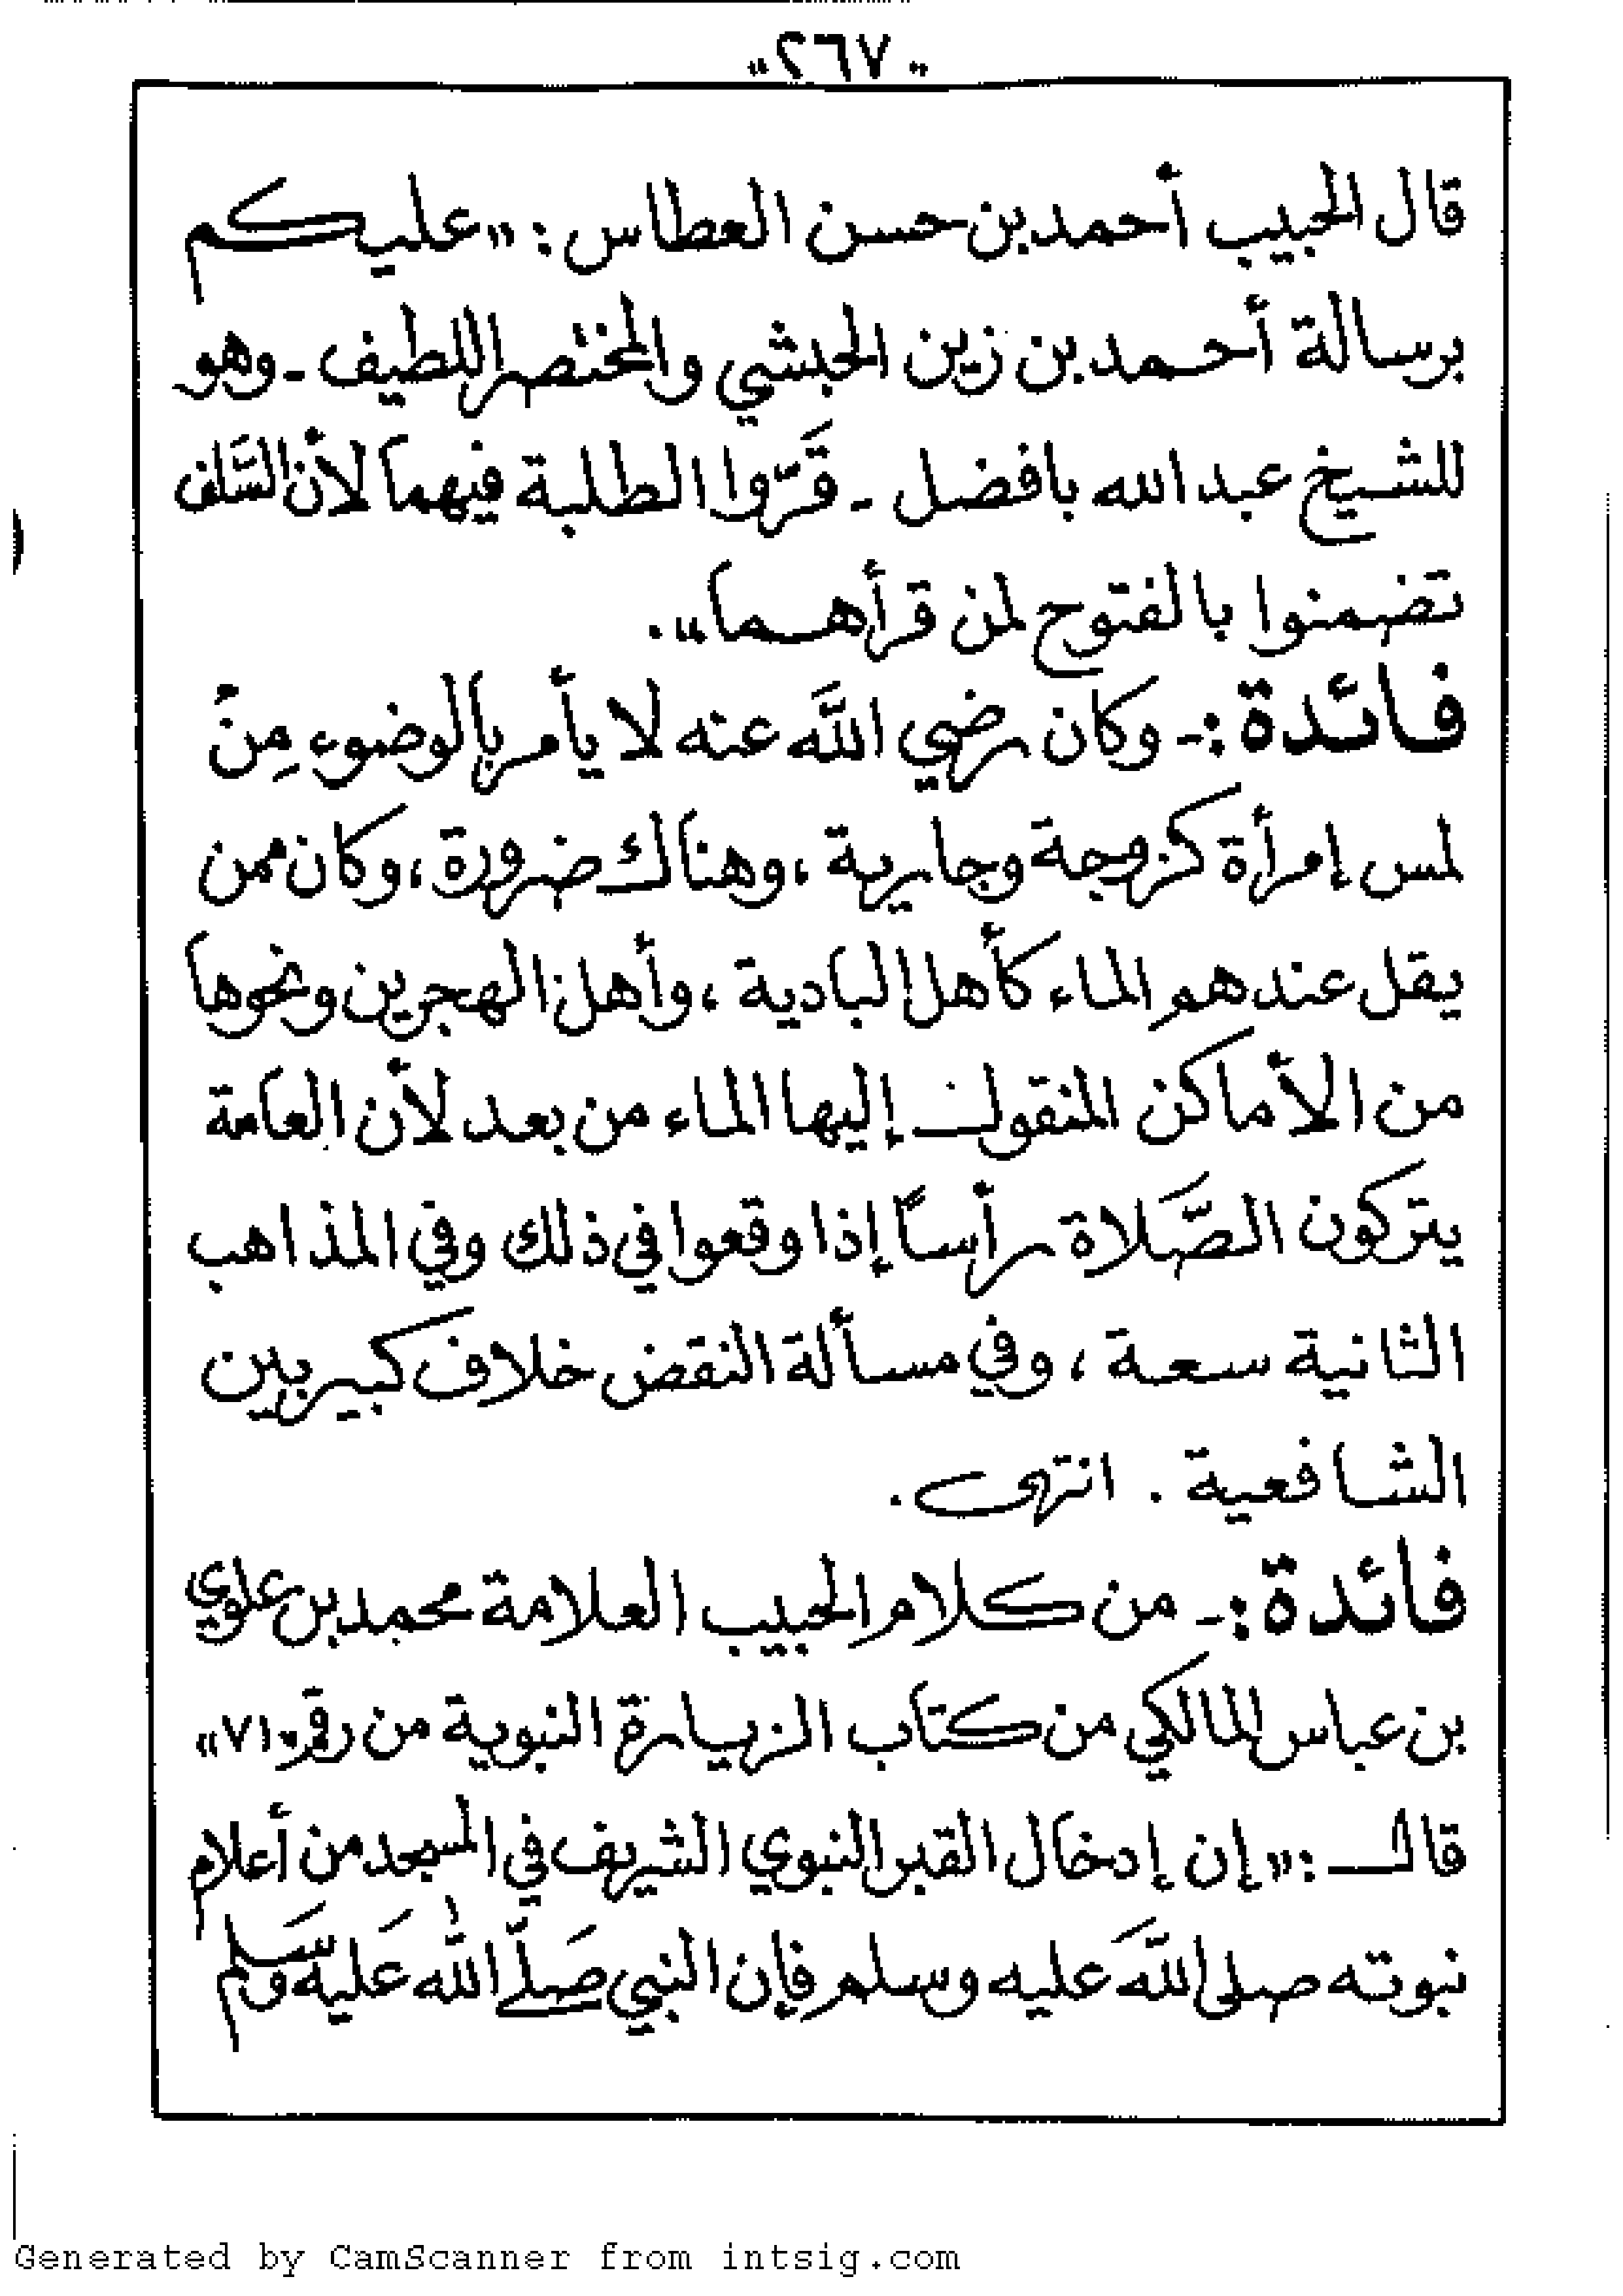 "٢٦٧"
قال الحبيب أحمد بن حسن العطاس : "عليكم
برسالة أحمد بن زين الحبشي والمختصر اللطيف - وهو
للشيخ عبد الله بافضل - قَرّوا الطلبة فيهما لأن السَّلف
تضمنوا بالفتوح لمن قرأهما".
فائدة :- وكان رضي اللَّه عنه لا يأمر بالوضوء مِنْ
لمس إمرأة كزوجة وجارية ، وهناك ضرورة ، وكان ممن
يقل عندهم الماء كأهل البادية ، وأهل الهجرين ونحوها
من الأماكن المنقول إليها الماء من بعد لأن العامة
يتركون الصَّلاة رأساً إذا وقعوا في ذلك وفي المذاهب
الثانية سعة ، وفي مسألة النقض خلاف كبير بين
الشافعية . انتهى .
فائدة :- من كلام الحبيب العلامة محمد بن علوي
بن عباس المالكي من كتاب الزيارة النبوية من رقم "٧١"
قال : "إن إدخال القبر النبوي الشريف في المسجد من أعلام
نبوته صلى اللَّه عليه وسلم فإن النبي صَلَّى اللَّه عَليه وَسَلم
Generated by CamScanner from intsig.com